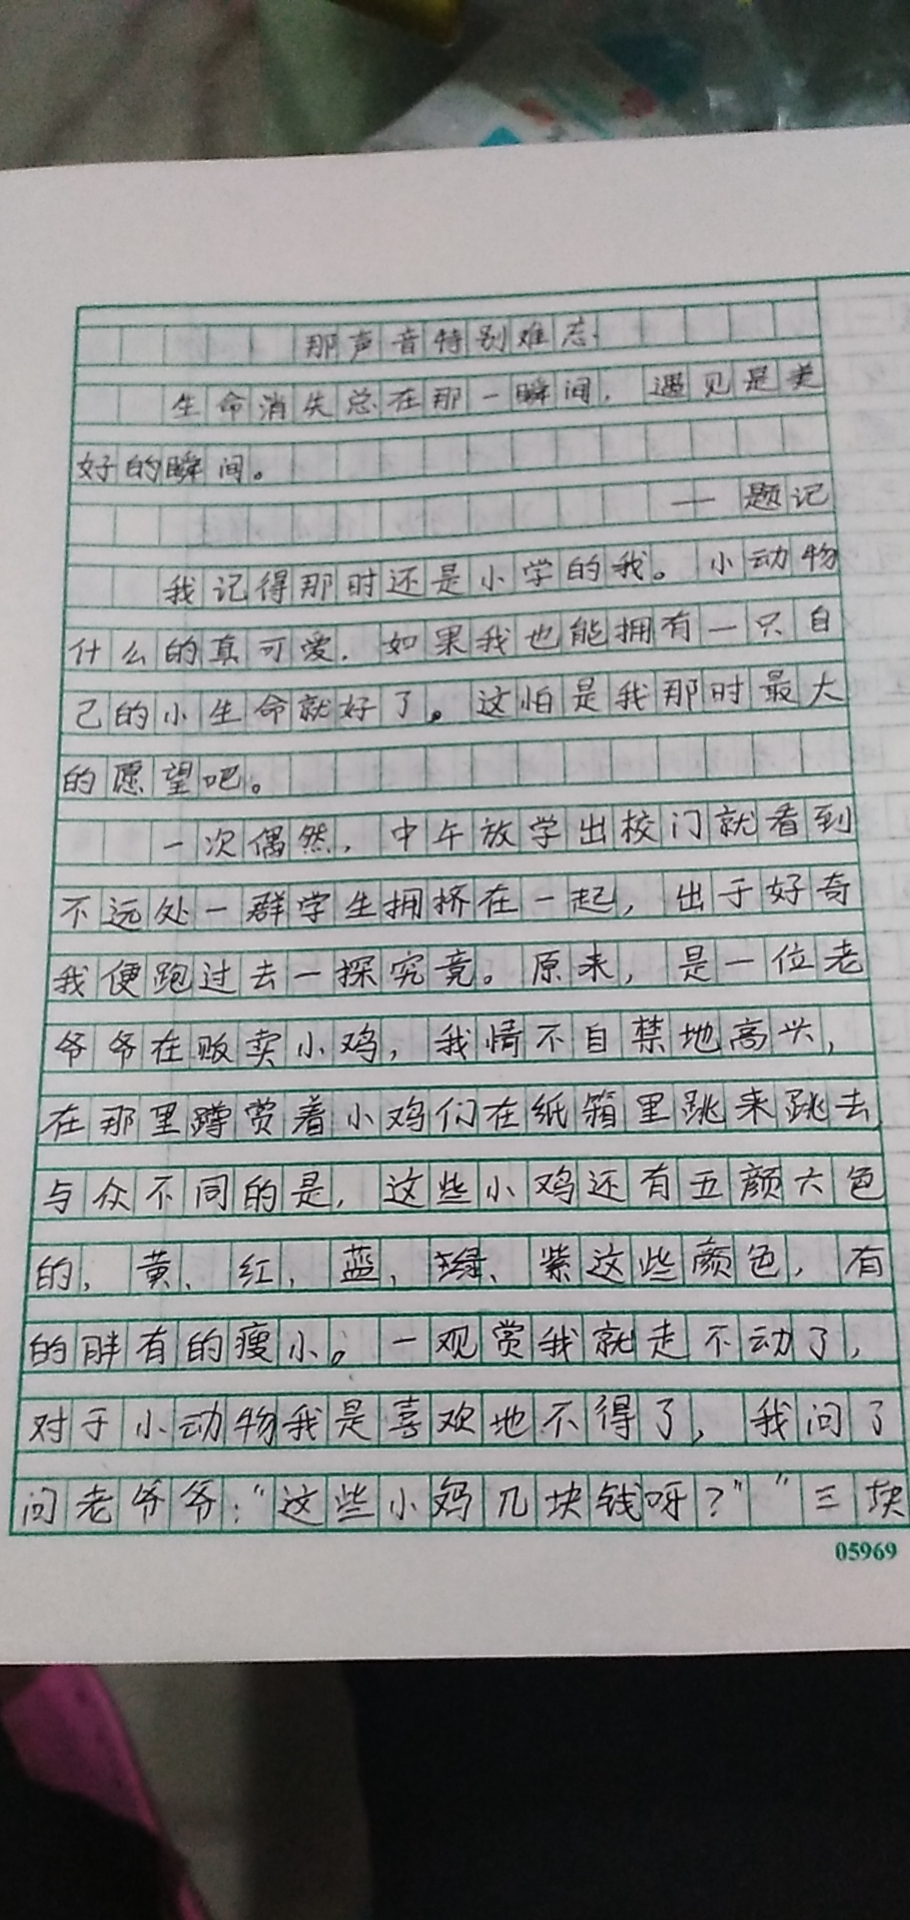 那声音特别难忘
生命消失总在那一瞬间，遇见是美
好的瞬间。
——题记
我记得那时还是小学的我。小动物
什么的真可爱，如果我也能拥有一只自
己的小生命就好了。这怕是我那时最大
的愿望吧。
一次偶然，中午放学出校门就看到
不远处一群学生拥挤在一起，出于好奇
我便跑过去一探究竟。原来，是一位老
爷爷在贩卖小鸡，我情不自禁地高兴，
在那里蹲赏着小鸡们在纸箱里跳来跳去
与众不同的是，这些小鸡还有五颜六色
的，黄、红、蓝、绿、紫这些颜色，有
的胖有的瘦小。一观赏我就走不动了，
对于小动物我是喜欢地不得了，我问了
问老爷爷：“这些小鸡几块钱呀？”“三块
05969